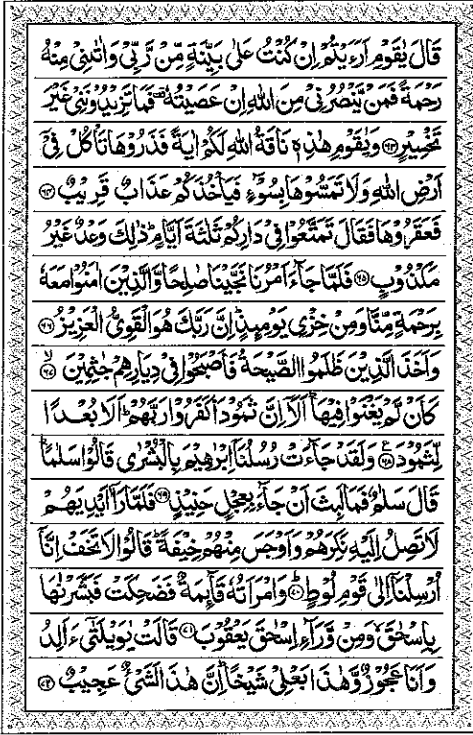 قَالَ يٰقَوْمِ اَرَءَيْتُمْ اِنْ كُنْتُ عَلٰى بَيِّنَةٍ مِّنْ رَّبِّيْ وَاٰتٰىنِيْ مِنْهُ
رَحْمَةً فَمَنْ يَّنْصُرُنِيْ مِنَ اللّٰهِ اِنْ عَصَيْتُهٗ ۫ فَمَا تَزِيْدُوْنَنِيْ غَيْرَ
تَخْسِيْرٍ ﴿۶۳﴾ وَيٰقَوْمِ هٰذِهٖ نَاقَةُ اللّٰهِ لَكُمْ اٰيَةً فَذَرُوْهَا تَاْكُلْ فِيْۤ
اَرْضِ اللّٰهِ وَلَا تَمَسُّوْهَا بِسُوْٓءٍ فَيَاْخُذَكُمْ عَذَابٌ قَرِيْبٌ ﴿۶۴﴾
فَعَقَرُوْهَا فَقَالَ تَمَتَّعُوْا فِيْ دَارِكُمْ ثَلٰثَةَ اَيَّامٍ ؕ ذٰلِكَ وَعْدٌ غَيْرُ
مَكْذُوْبٍ ﴿۶۵﴾ فَلَمَّا جَآءَ اَمْرُنَا نَجَّيْنَا صٰلِحًا وَّالَّذِيْنَ اٰمَنُوْا مَعَهٗ
بِرَحْمَةٍ مِّنَّا وَمِنْ خِزْيِ يَوْمِىِٕذٍ ؕ اِنَّ رَبَّكَ هُوَ الْقَوِيُّ الْعَزِيْزُ ﴿۶۶﴾
وَاَخَذَ الَّذِيْنَ ظَلَمُوا الصَّيْحَةُ فَاَصْبَحُوْا فِيْ دِيَارِهِمْ جٰثِمِيْنَ ﴿۶۷﴾ۙ
كَاَنْ لَّمْ يَغْنَوْا فِيْهَا ؕ اَلَاۤ اِنَّ ثَمُوْدَاۡ كَفَرُوْا رَبَّهُمْ ؕ اَلَا بُعْدًا
لِّثَمُوْدَ ﴿۶۸﴾ وَلَقَدْ جَآءَتْ رُسُلُنَاۤ اِبْرٰهِيْمَ بِالْبُشْرٰى قَالُوْا سَلٰمًا ؕ
قَالَ سَلٰمٌ فَمَا لَبِثَ اَنْ جَآءَ بِعِجْلٍ حَنِيْذٍ ﴿۶۹﴾ فَلَمَّا رَاٰۤ اَيْدِيَهُمْ
لَا تَصِلُ اِلَيْهِ نَكِرَهُمْ وَاَوْجَسَ مِنْهُمْ خِيْفَةً ؕ قَالُوْا لَا تَخَفْ اِنَّاۤ
اُرْسِلْنَاۤ اِلٰى قَوْمِ لُوْطٍ ﴿۷۰﴾ؕ وَامْرَاَتُهٗ قَآىِٕمَةٌ فَضَحِكَتْ فَبَشَّرْنٰهَا
بِاِسْحٰقَ وَمِنْ وَّرَآءِ اِسْحٰقَ يَعْقُوْبَ ﴿۷۱﴾ قَالَتْ يٰوَيْلَتٰٓى ءَاَلِدُ
وَاَنَا عَجُوْزٌ وَّهٰذَا بَعْلِيْ شَيْخًا ؕ اِنَّ هٰذَا لَشَيْءٌ عَجِيْبٌ ﴿۷۲﴾